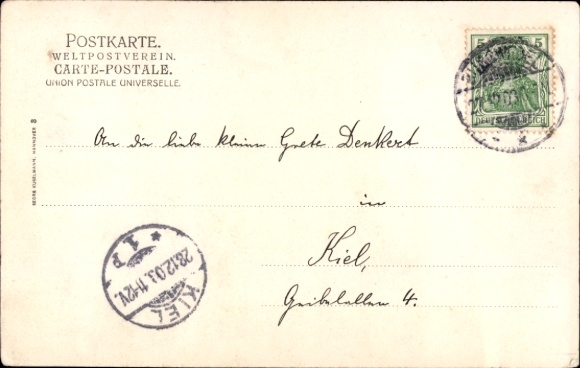 POSTKARTE.
WELTPOSTVEREIN.
CARTE-POSTALE.
UNION POSTALE UNIVERSELLE.
5 5
DEUTSCHES REICH
GEORG KUGELMANN, HANNOVER 3
An die liebe kleine Grete Denkert
in
Kiel,
Geibelallee 4.
KIEL
28.12.03. 11-12V.
* 1 P